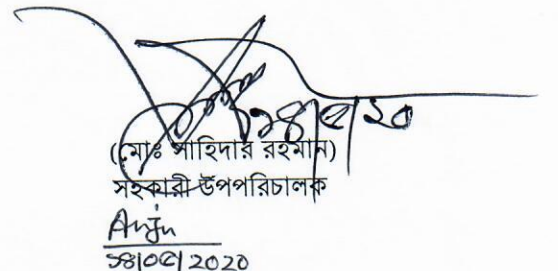 ১৪/৫/২০
(মোঃ সাহিদার রহমান)
সহকারী উপপরিচালক
Anju
১৪/০৫/2020